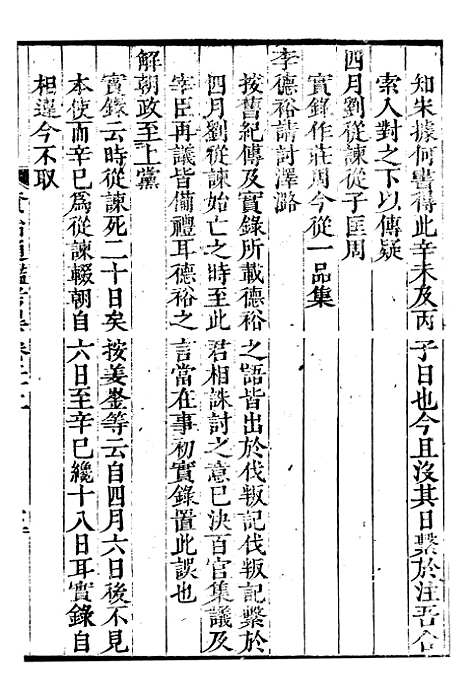 知朱據何書得此辛未及丙子日也今且沒其日繫於注吾合
索人對之下以傳疑
四月劉從諫從子匡周
實錄作莊周今從一品集
李德裕請討澤潞
按舊紀傳及實錄所載德裕之語皆出於伐叛記伐叛記繫於
四月劉從諫始亡之時至此君相誅討之意已決百官集議及
宰臣再議皆備禮耳德裕之言當在事初實錄置此誤也
解朝政至上黨
實錄云時從諫死二十日矣按姜崟等云自四月六日後不見
本使而辛巳為從諫輟朝自六日至辛巳纔十八日耳實錄自
相違今不取
資治通鑑考異卷二十二